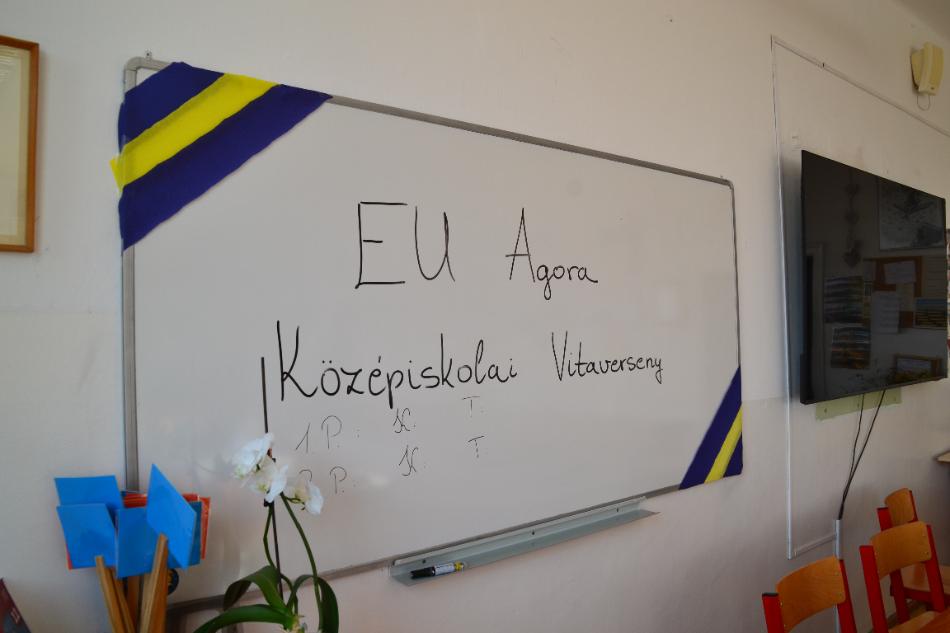 EU Agora
Középiskolai Vitaverseny
1. P.: K: T:
2. P.: K: T: